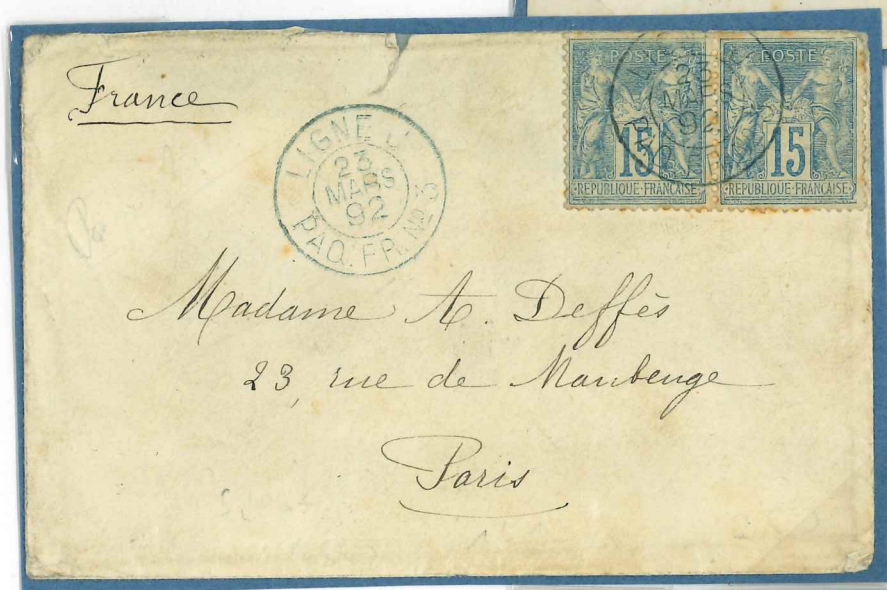 France
LIGNE J
23
MARS
92
PAQ. FR. Nº 3
POSTE
15
REPUBLIQUE FRANÇAISE
POSTE
15
REPUBLIQUE FRANÇAISE
Madame A. Deffès
23, rue de Maubeuge
Paris